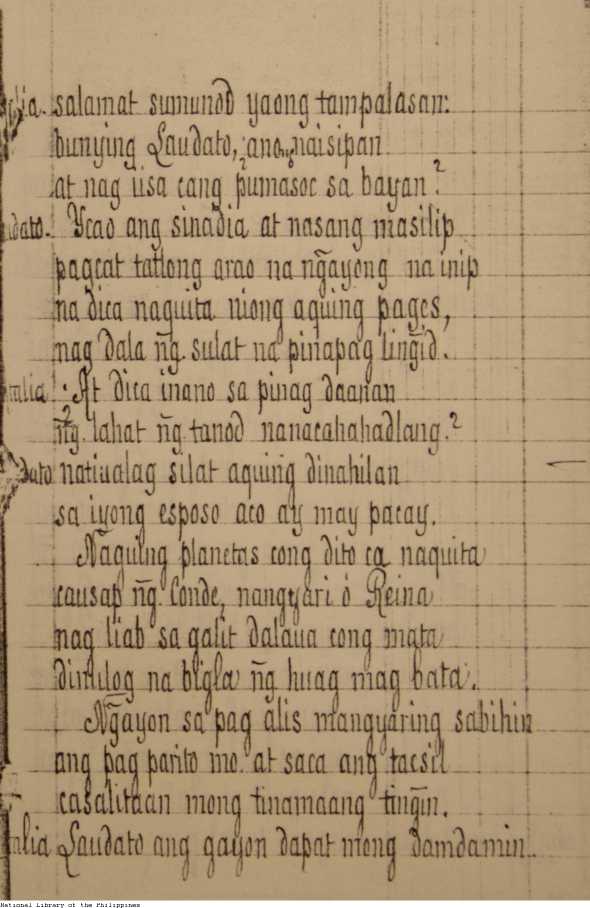 salamat sumunod yaong tampalasan:
bunying Laudato, ano naisipan
at nag iisa cang pumasoc sa bayan?
Ycao ang sinadia at nasang masilip
pagcat tatlong arao na ng̃ayong na inip
na dica naquita niong aquing pages,
nag dala ñg. sulat na pinapag ling̃id.
At dica inano sa pinag daanan
ñg. lahat ñg tanod nanacahahadlang.?
natiualag silat aquing dinahilan
sa iyong esposo aco ay may pacay.
Naguing planetas cong dito ca naquita
causap ñg. Conde, nangyari ó Reina
nag liab sa galit dalaua cong mata
dimulog na bigla ñg huag mag bata.
Ng̃ayon sa pag alis mangyaring sabihin
ang pag parito mo. at saca ang tacsil
casalitaan mong tinamaang ting̃in.
Laudato ang gayon dapat mong damdamin.
National Library of the Philippines